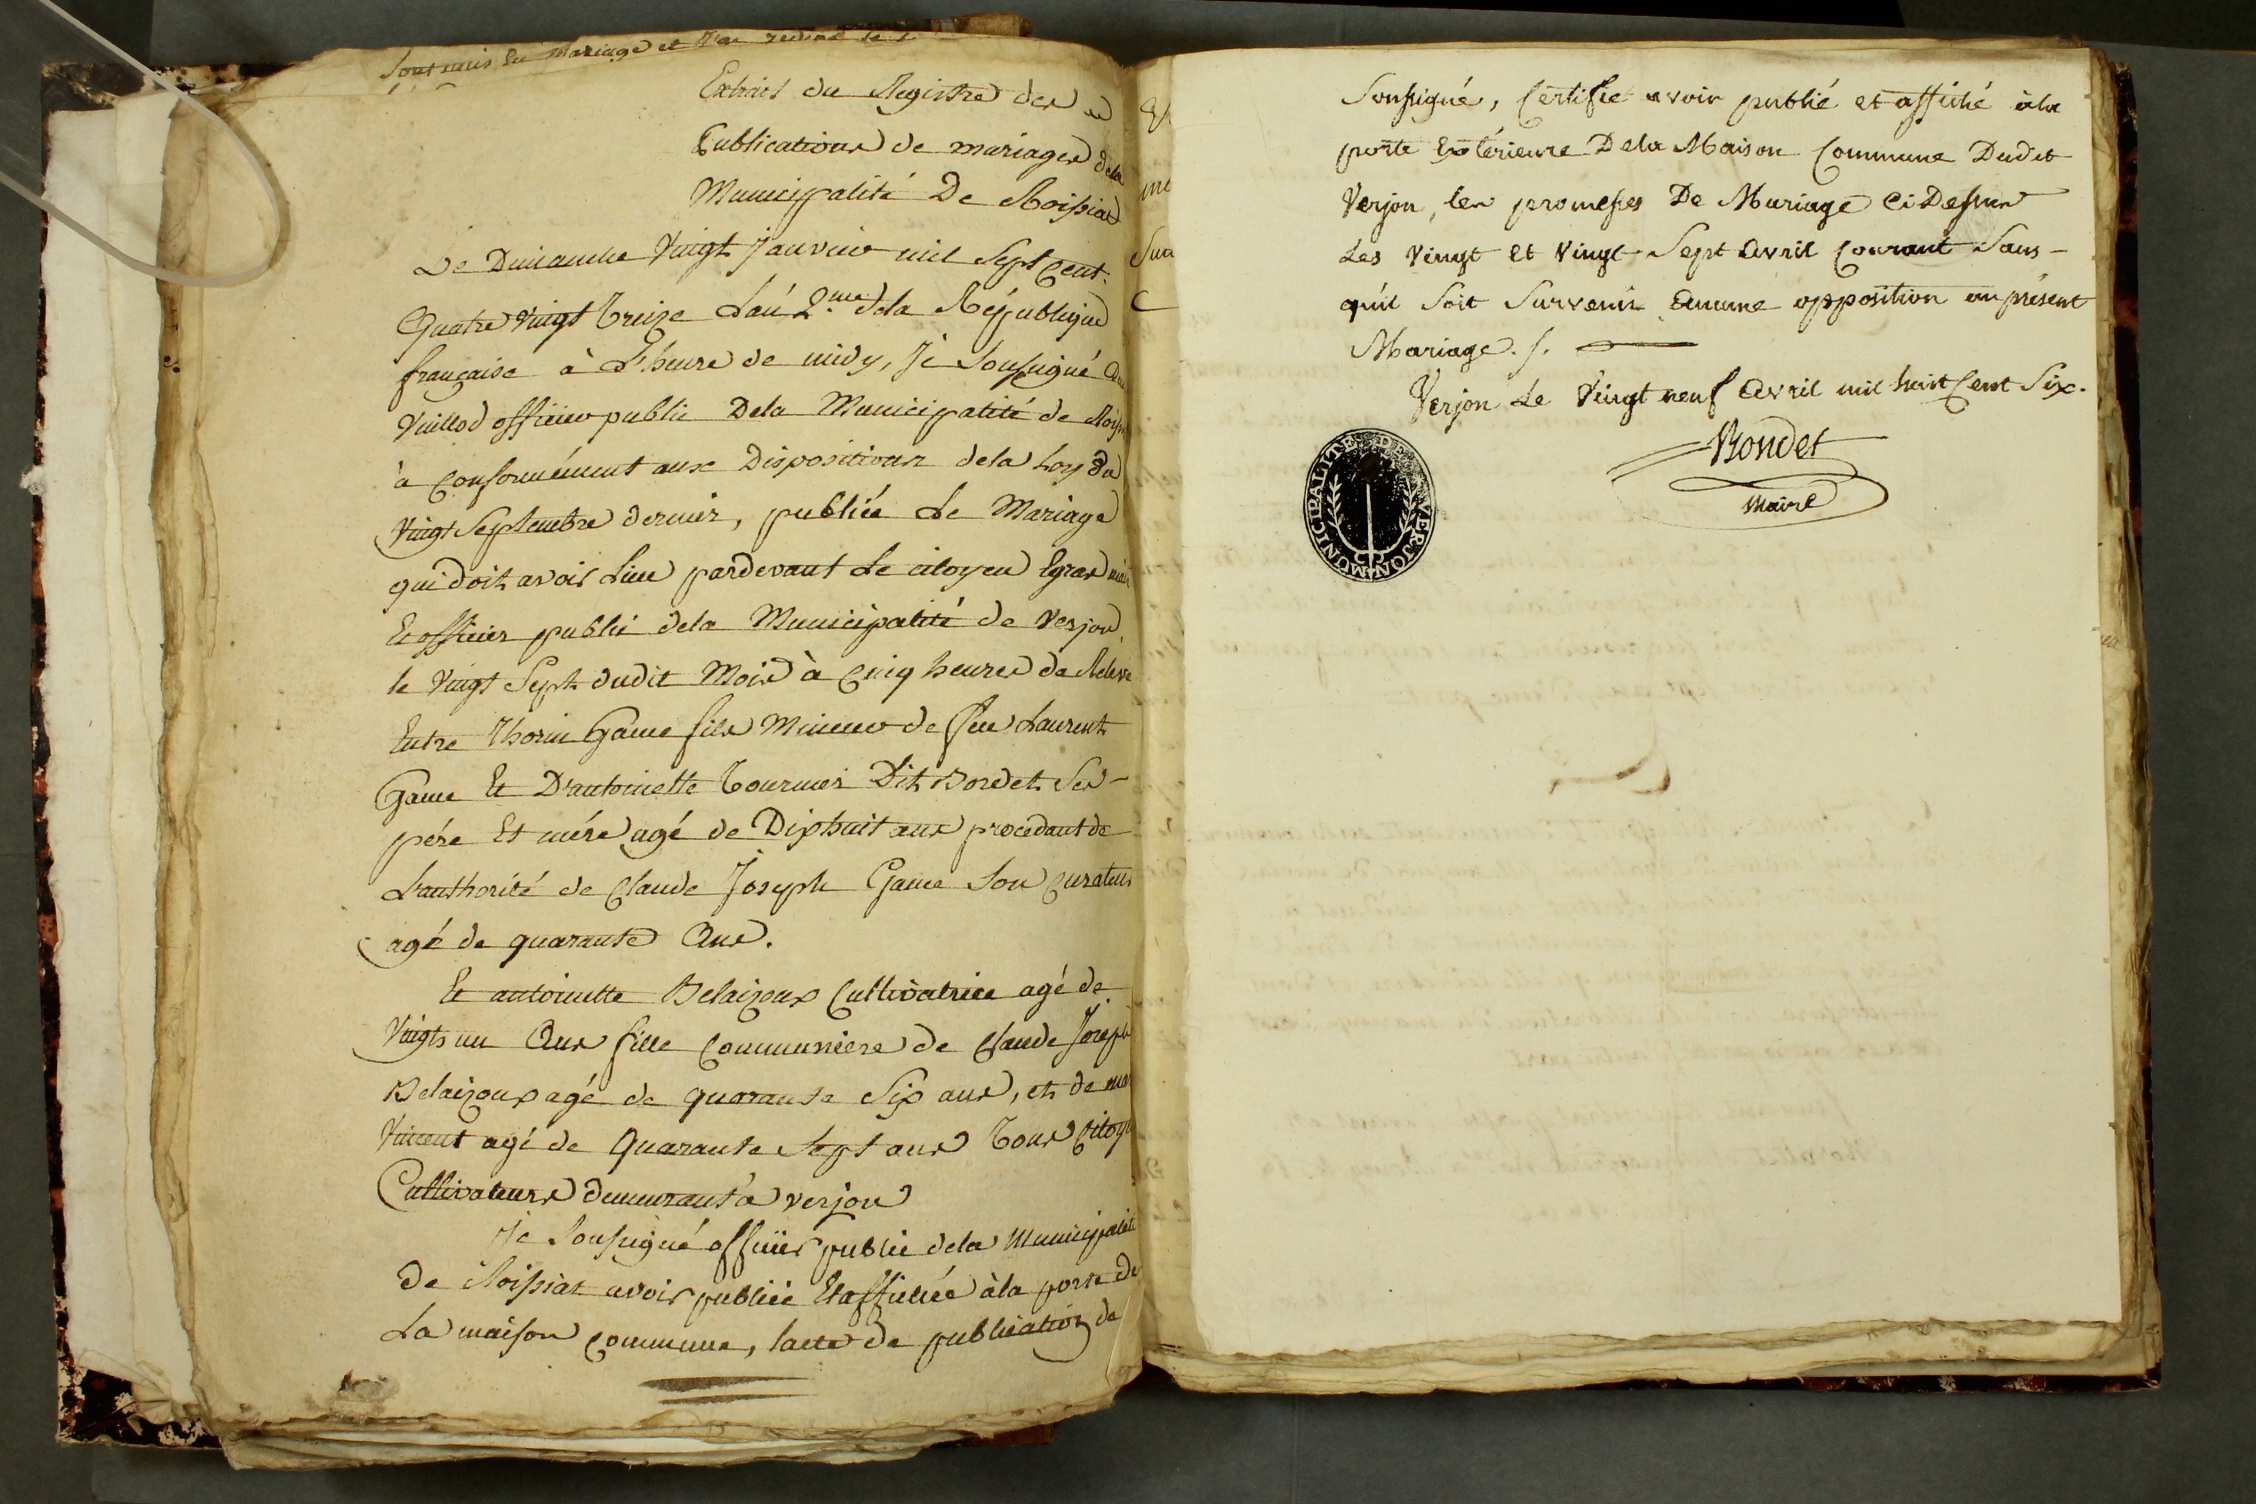 Sont unis En Mariage et
Extrait du Registre des
Publications de mariages dela
Municipalité De Roissiat
Le Dimanche Vingt Janvier mil Sept Cent
Quatre Vingt Treize L'an 2.me dela République
française à L'heure de midy, Je Soussigné
Vuillod officier public Dela Municipalité de
à Conformément aux Dispositions dela Loy du
Vingt Septembre dernier, publiée Le Mariage
qui doit avoir Lieu pardevant Le citoyen Egraz
Et officier public dela Municipalité de Verjon,
le Vingt Sept dudit Mois à Cinq heures de Relevé
Entre Thorin Game fils Mineur de feu Laurent
Game Et D'antoinette Tournier Dit Bordet Ses
pére Et mére agé de Dixhuit ans procedant de
L'authorité de Claude Joseph Game Son Curateur
agé de quarante Ans.
Et antoinette Belaizoux Cultivatrice agé de
Vingts un Ans fille Communiere de Claude Joseph
Belaizoux agé de quarante Six ans, et de
Vincent agé de Quarante Sept ans Tous Citoy
Cultivateurs demeurant à verjon
Je Soussigné officier public dela Municipalité
De Roissiat avoir publiée Et affichée à la porte de
La maison Commune, lacte de publication de
Soussigné, Certifie avoir publié et affiché à la
porte Extérieure Dela Maison Commune Dudit
Verjon, les promesses De Mariage Ci Dessus
Les Vingt et Vingt-Sept Avril Courant Sans-
qu'il Soit Survenu Aucune opposition au présent
Mariage. /.
Verjon Le Vingt neuf Avril mil huit Cent Six.
Bondet
Maire
MUNICIPALITE DE VERJON